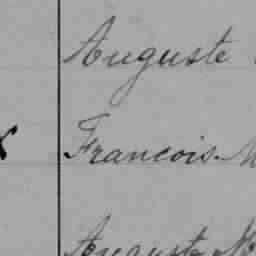 Auguste
Francois. M
Auguste